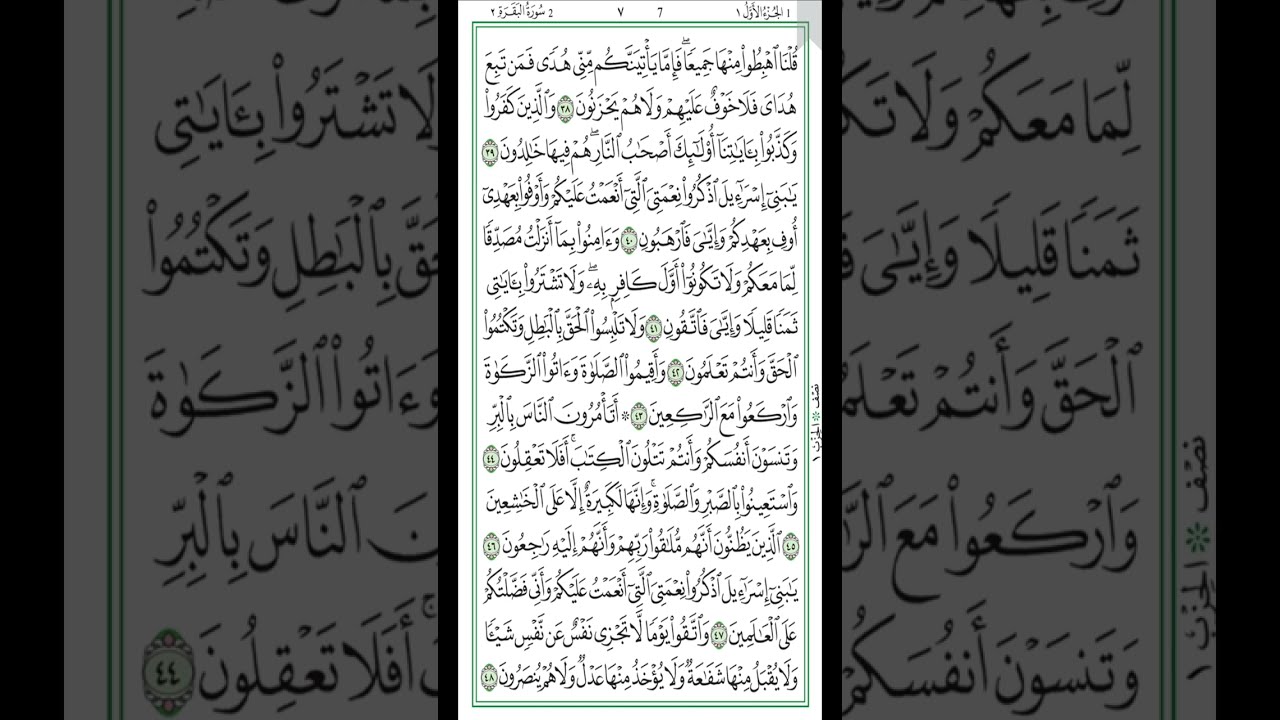 1 الجُزْءُ الأَوَّلُ ١
7 ٧
2 سُورَةُ البَقَرَةِ ٢
قُلْنَا ٱهْبِطُوا۟ مِنْهَا جَمِيعًۭا ۖ فَإِمَّا يَأْتِيَنَّكُم مِّنِّى هُدًۭى فَمَن تَبِعَ
هُدَاىَ فَلَا خَوْفٌ عَلَيْهِمْ وَلَا هُمْ يَحْزَنُونَ ٣٨ وَٱلَّذِينَ كَفَرُوا۟
وَكَذَّبُوا۟ بِـَٔايَـٰتِنَآ أُو۟لَـٰٓئِكَ أَصْحَـٰبُ ٱلنَّارِ ۖ هُمْ فِيهَا خَـٰلِدُونَ ٣٩
يَـٰبَنِىٓ إِسْرَٰٓءِيلَ ٱذْكُرُوا۟ نِعْمَتِىَ ٱلَّتِىٓ أَنْعَمْتُ عَلَيْكُمْ وَأَوْفُوا۟ بِعَهْدِىٓ
أُوفِ بِعَهْدِكُمْ وَإِيَّـٰىَ فَٱرْهَبُونِ ٤٠ وَءَامِنُوا۟ بِمَآ أَنزَلْتُ مُصَدِّقًۭا
لِّمَا مَعَكُمْ وَلَا تَكُونُوٓا۟ أَوَّلَ كَافِرٍۭ بِهِۦ ۖ وَلَا تَشْتَرُوا۟ بِـَٔايَـٰتِى
ثَمَنًۭا قَلِيلًۭا وَإِيَّـٰىَ فَٱتَّقُونِ ٤١ وَلَا تَلْبِسُوا۟ ٱلْحَقَّ بِٱلْبَـٰطِلِ وَتَكْتُمُوا۟
ٱلْحَقَّ وَأَنتُمْ تَعْلَمُونَ ٤٢ وَأَقِيمُوا۟ ٱلصَّلَوٰةَ وَءَاتُوا۟ ٱلزَّكَوٰةَ
وَٱرْكَعُوا۟ مَعَ ٱلرَّٰكِعِينَ ٤٣ ۞ أَتَأْمُرُونَ ٱلنَّاسَ بِٱلْبِرِّ
وَتَنسَوْنَ أَنفُسَكُمْ وَأَنتُمْ تَتْلُونَ ٱلْكِتَـٰبَ ۚ أَفَلَا تَعْقِلُونَ ٤٤
وَٱسْتَعِينُوا۟ بِٱلصَّبْرِ وَٱلصَّلَوٰةِ ۚ وَإِنَّهَا لَكَبِيرَةٌ إِلَّا عَلَى ٱلْخَـٰشِعِينَ
٤٥ ٱلَّذِينَ يَظُنُّونَ أَنَّهُم مُّلَـٰقُوا۟ رَبِّهِمْ وَأَنَّهُمْ إِلَيْهِ رَٰجِعُونَ ٤٦
يَـٰبَنِىٓ إِسْرَٰٓءِيلَ ٱذْكُرُوا۟ نِعْمَتِىَ ٱلَّتِىٓ أَنْعَمْتُ عَلَيْكُمْ وَأَنِّى فَضَّلْتُكُمْ
عَلَى ٱلْعَـٰلَمِينَ ٤٧ وَٱتَّقُوا۟ يَوْمًۭا لَّا تَجْزِى نَفْسٌ عَن نَّفْسٍۢ شَيْـًۭٔا
وَلَا يُقْبَلُ مِنْهَا شَفَـٰعَةٌۭ وَلَا يُؤْخَذُ مِنْهَا عَدْلٌۭ وَلَا هُمْ يُنصَرُونَ ٤٨
نِصْف الحِزْب ١